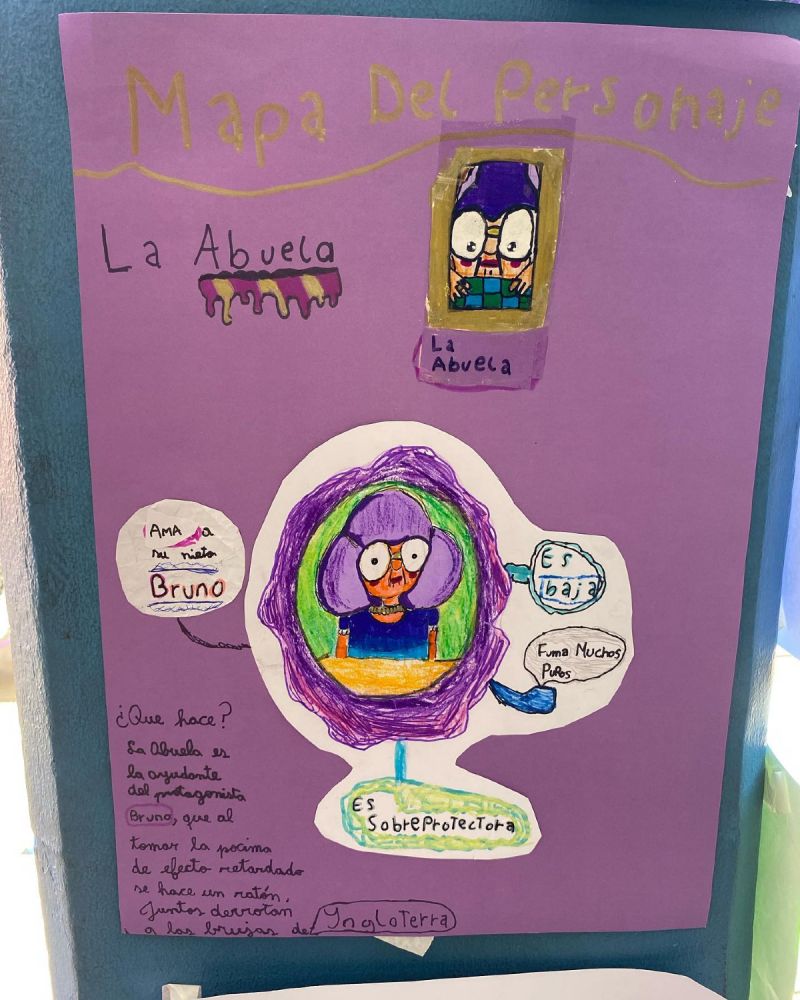 Mapa Del Personaje
La Abuela
La
Abuela
AMA a
su nieto
Bruno
Es
baja
Fuma Muchos
Puros
Es
SobreProtectora
¿Que hace?
La Abuela es
la ayudante
del protagonista
Bruno, que al
tomar la pocima
de efecto retardado
se hace un ratón.
Juntos derrotan
a las brujas de
Ynglaterra